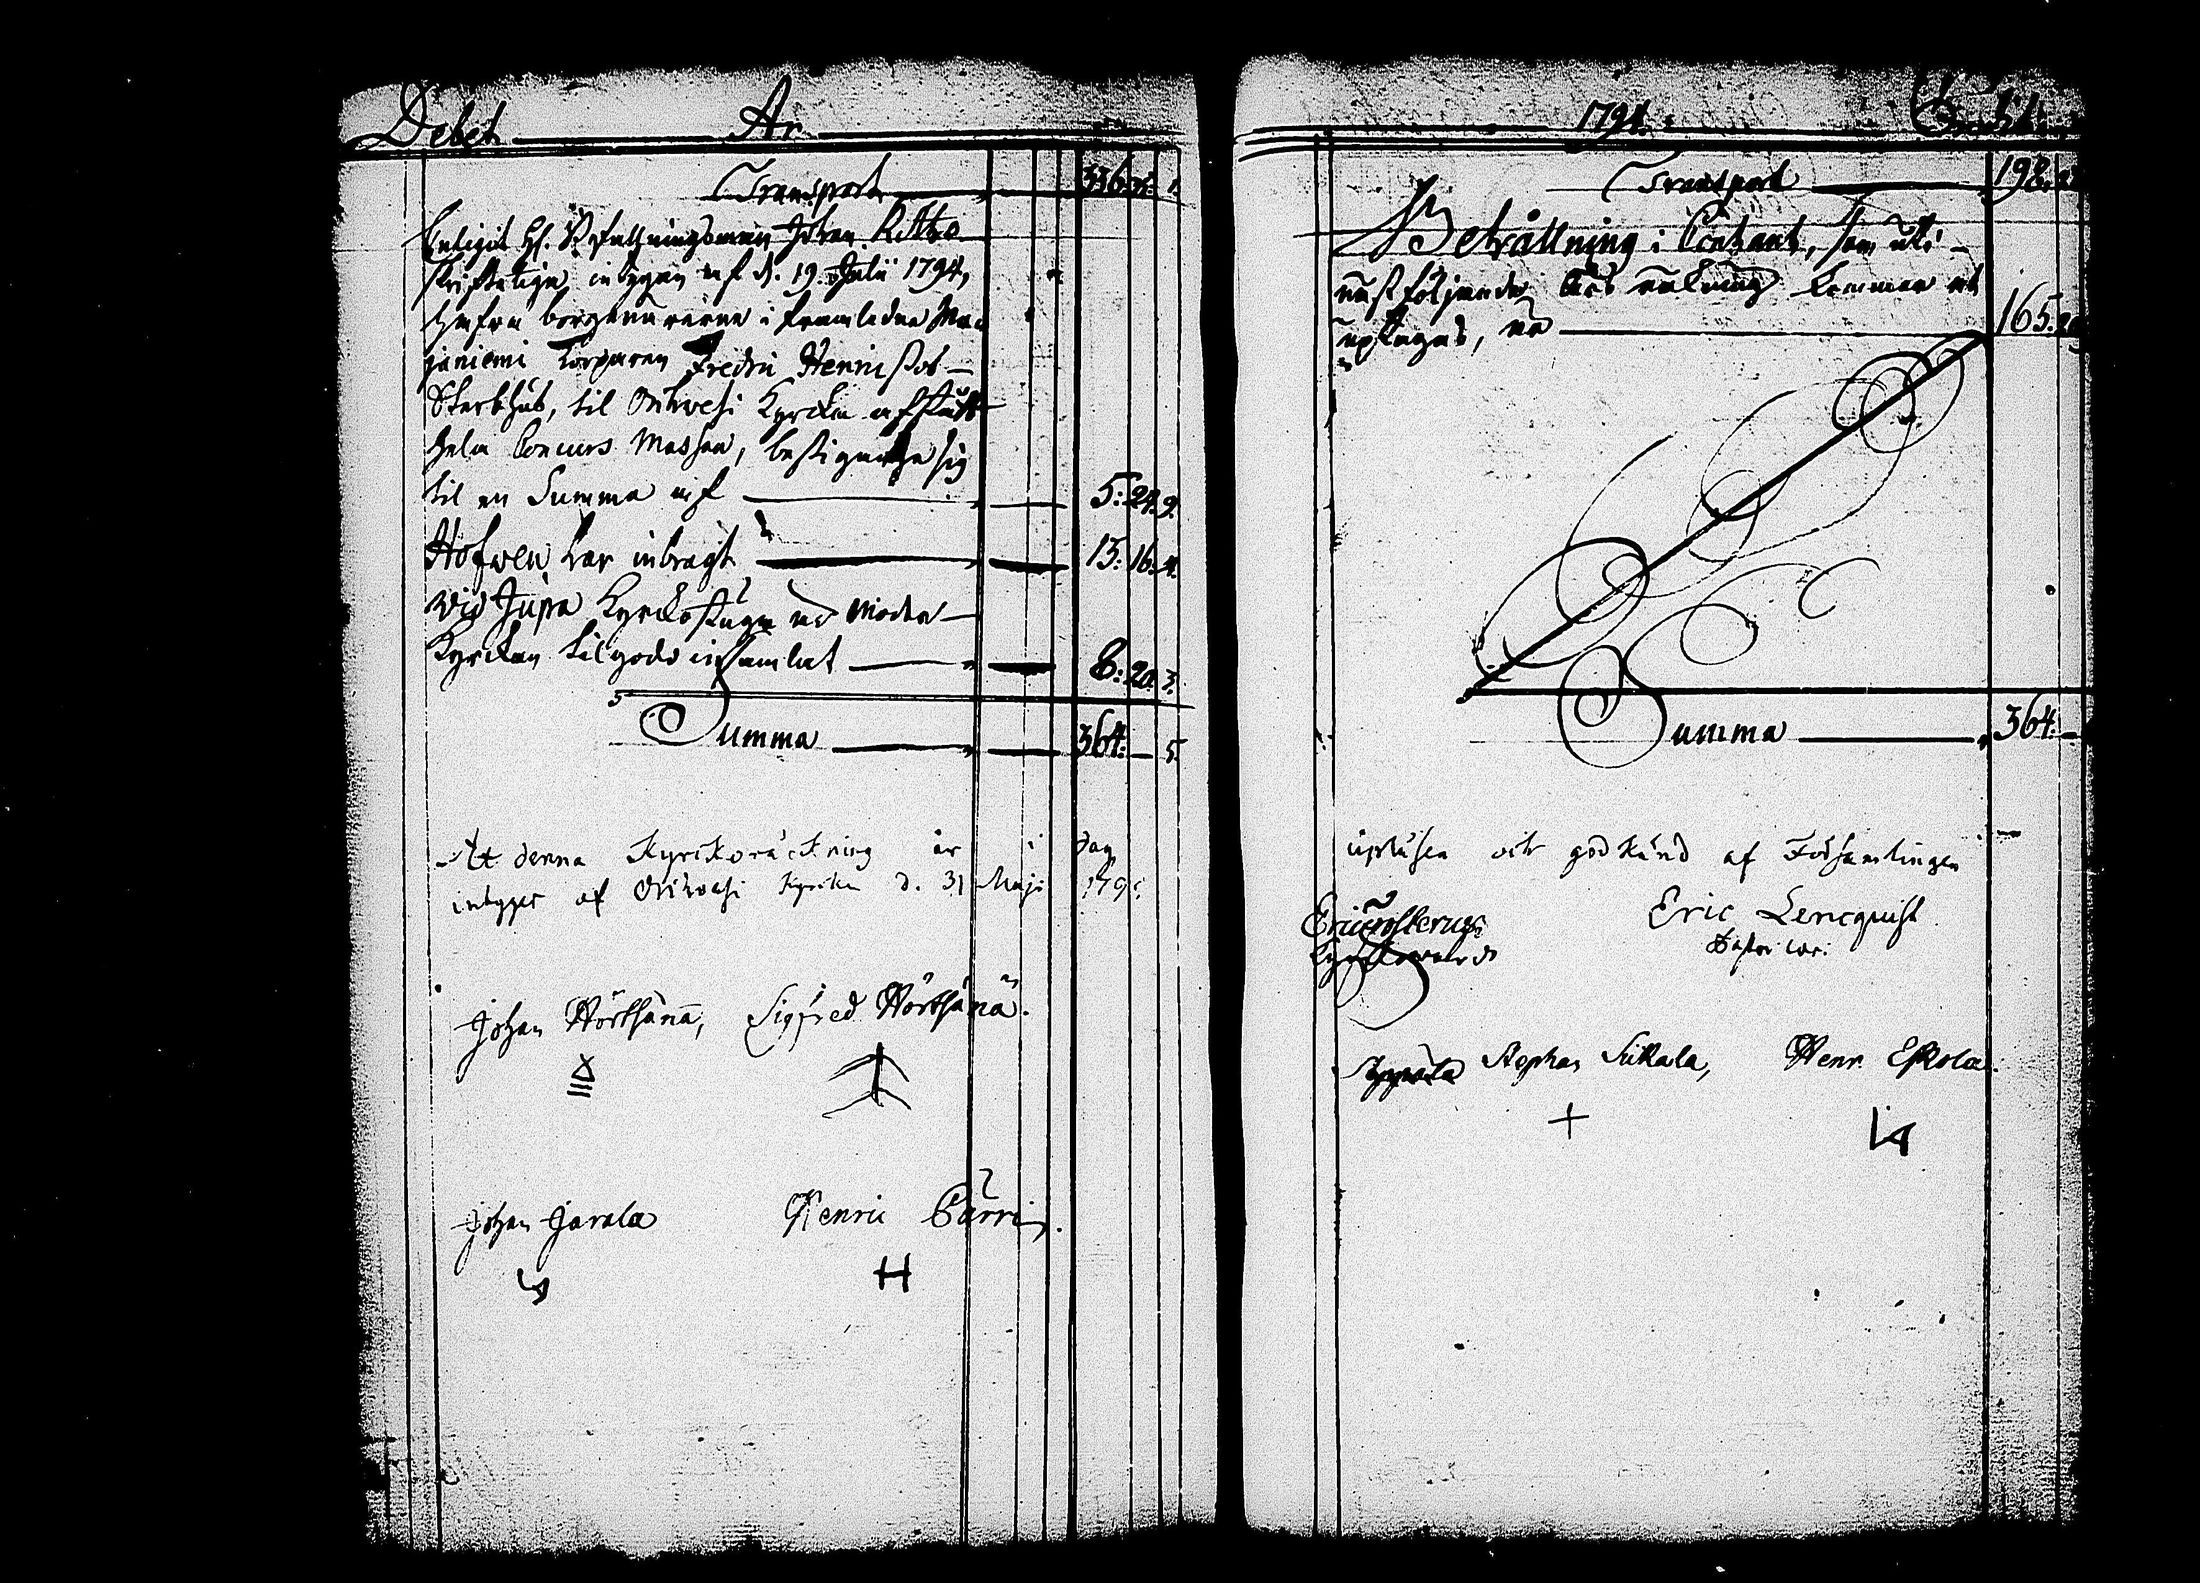 Debet Ar
Transport 336: 35: 1.
Enligit H. Befallningsman Johan Rittze
skrifteligen intygan af d. 19. Julii 1794,
hafva borgenärerne i framledne Ma
janiemi Torparen Fredric Henricssos
Sterbhus, til Orihvesi Kyrcka afstått
hela Concurs Massan, bestigande sig
til en Summa af 5: 24. 9.
Håfven har inbragt 13: 16. 4.
Wid Jupa Kyrckostugu är Moder
Kyrckan til godo insamlat 8: 20. 3.
Summa 364: — 5.
At denna Kyrckoräckning är i dag
intyges af Orihvesi Kyrcka d. 31 Maji 179
Johan Hörthänä, Sigfred Hörthänä.
Johan Jarala Henric Pärri.
H
1794. Credit
Transport 198.
Behållning i Contant, som uti
nästföljande års räkning kommer at
uptagas, är 165.
Summa 364. —
upläsen och godkänd af Församlingen
Eric Lencquist
Pastor loc.
Kyrckovärd
Stephan Sukala, Henr. Eskola.
+